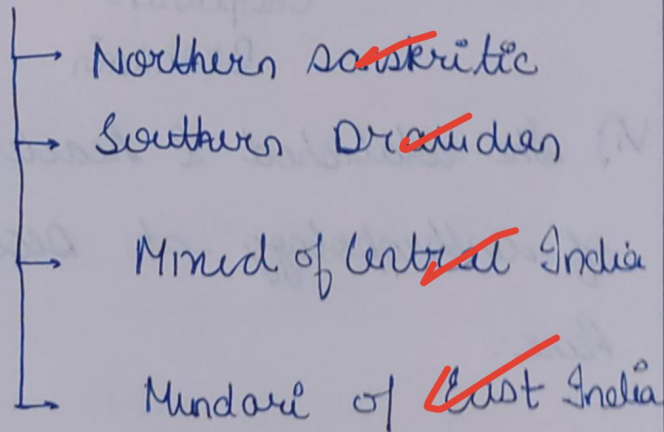 Northern Sanskritic
Southern Dravidian
Mixed of Central India
Mundari of East India